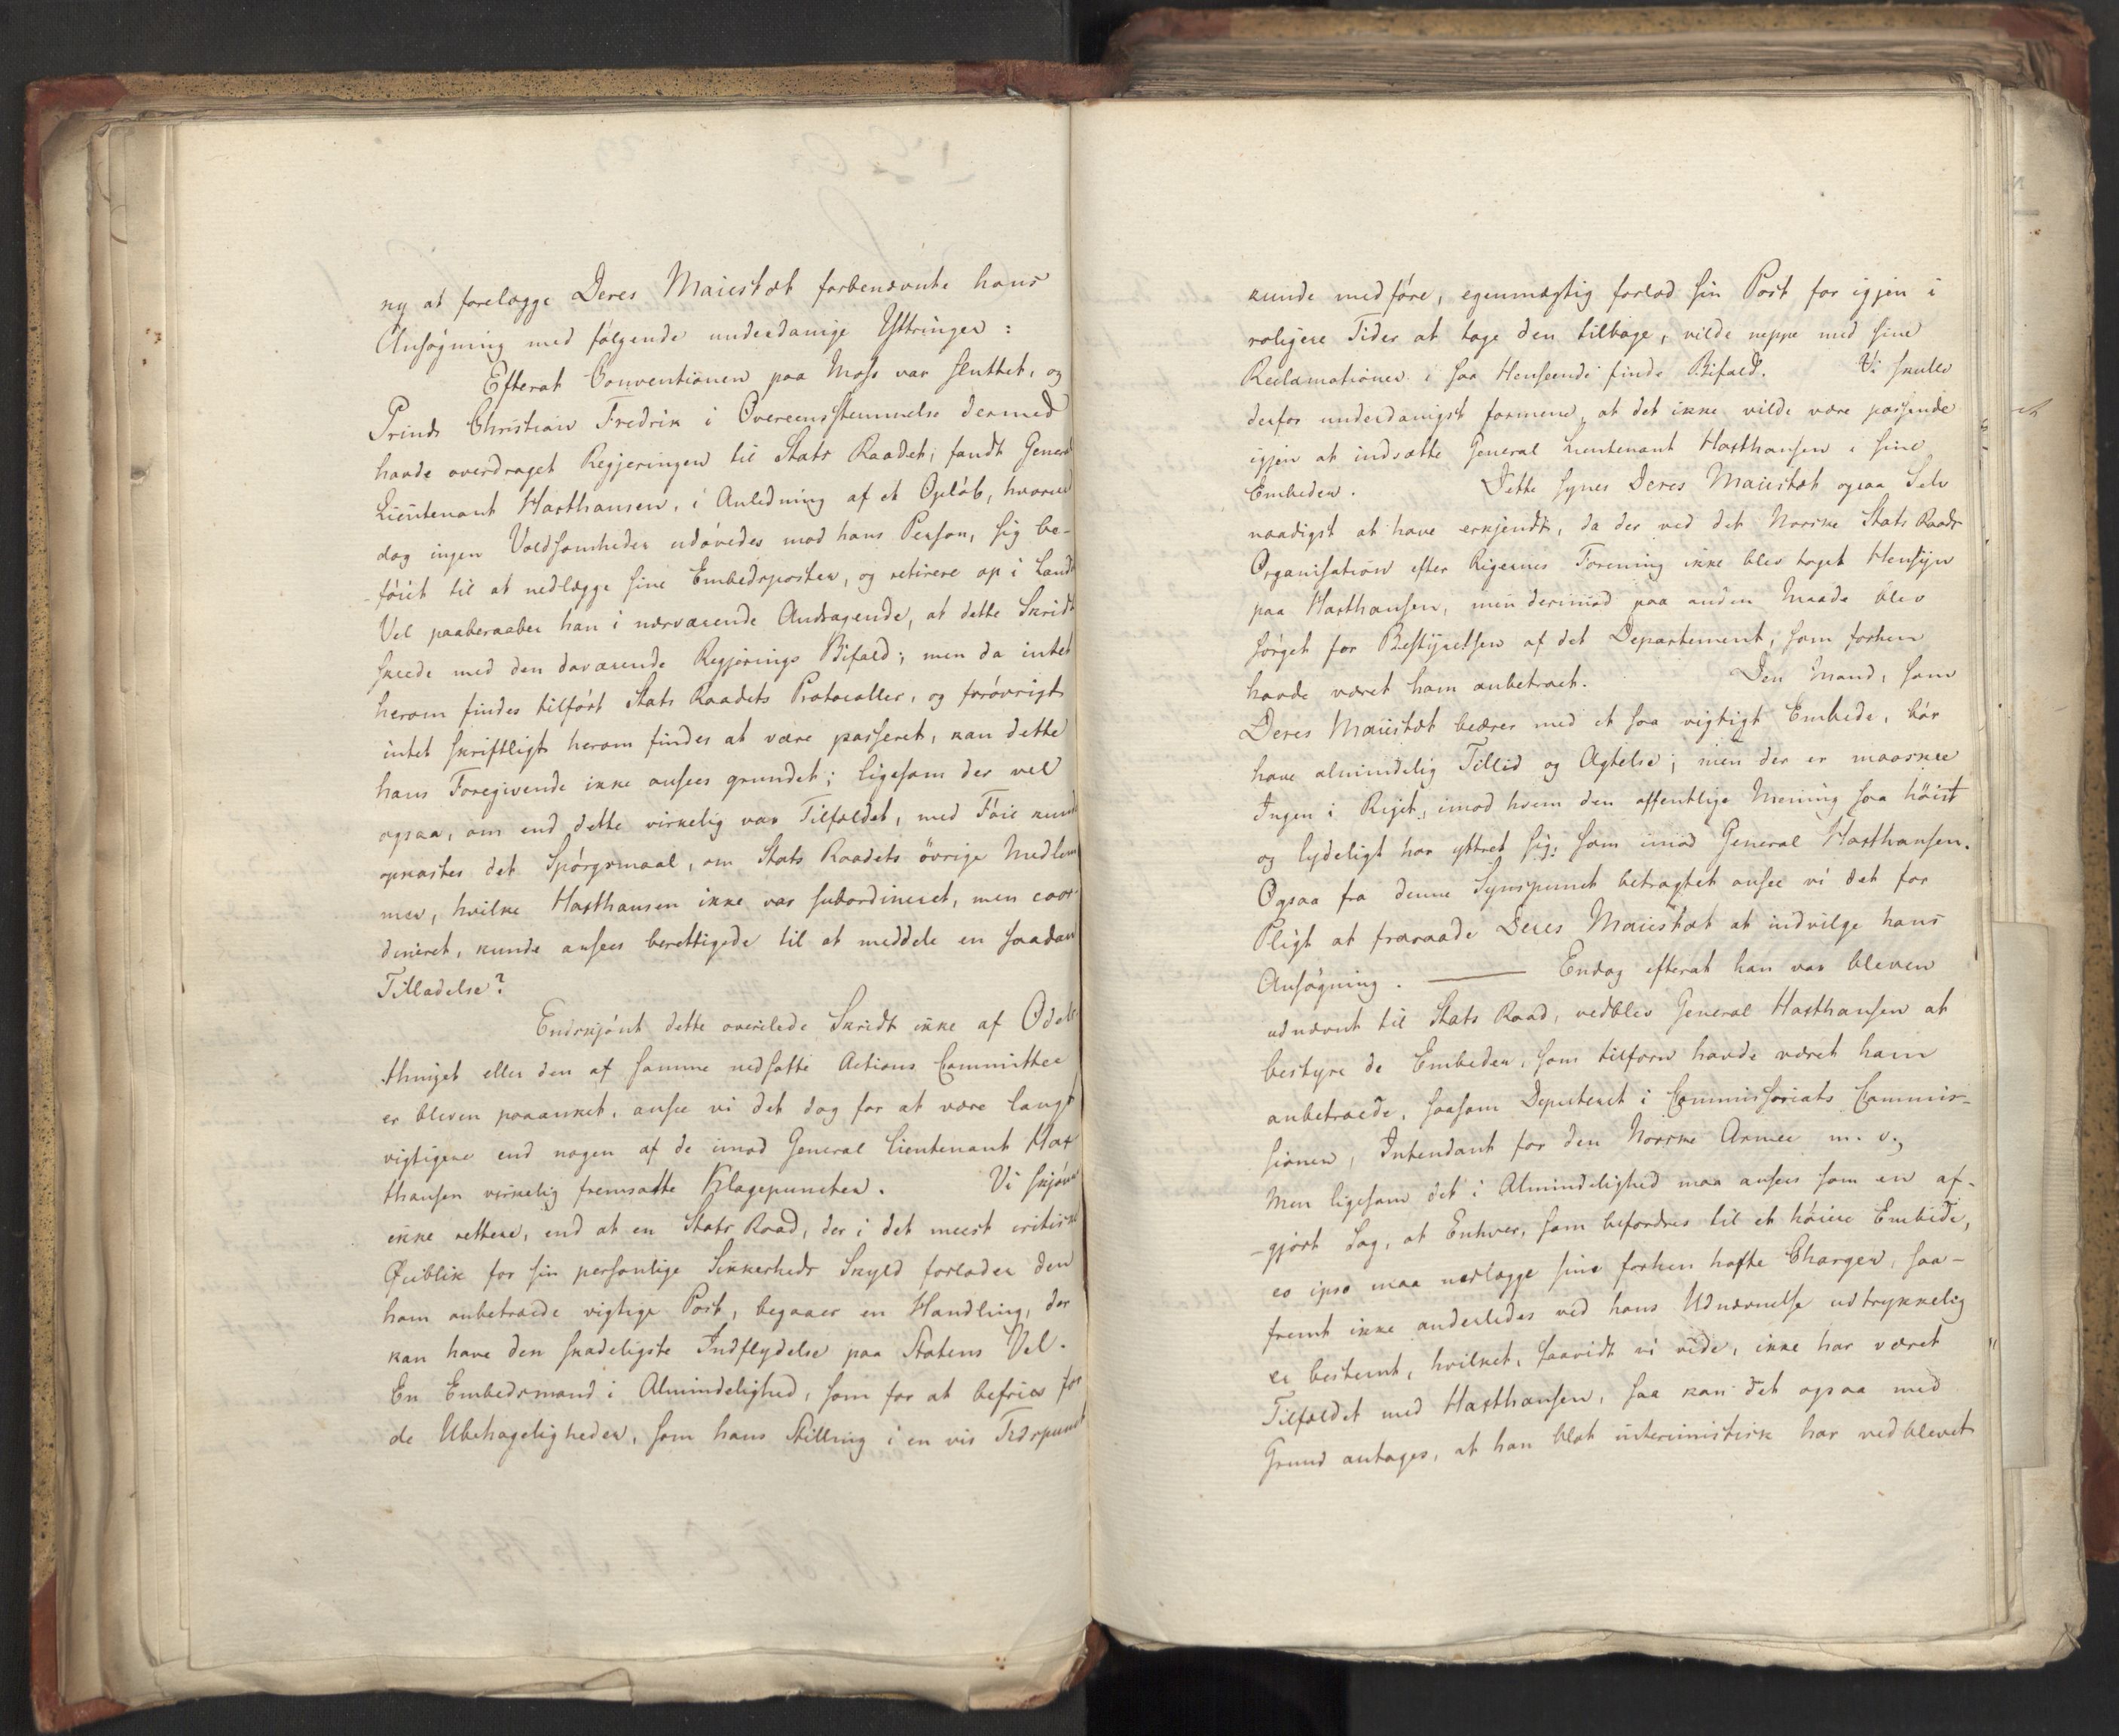 ny at forelægge Deres Maiestæt forbenævnte hans
Ansøgning med følgende underdanige Yttringer:
Efterat Conventionen paa Moss var sluttet, og
Prinds Christian Fredrik i Overeensstemmelse dermed
havde overdraget Regjeringen til Stats Raadet; fandt General
Lieutenant Haxthausen, i Anledning af et Opløb, hvorved
dog ingen Voldsomheder udøvedes mod hans Person, sig be-
-føiet til at nedlægge sine Embedsposter, og retirere op i Landet
Vel paaberaaber han i nærværende Andragende, at dette Skridt
skeede med den daværende Regjerings Bifald; men da intet
herom findes tilført Stats Raadets Protocoller, og forøvrigt
intet skriftligt herom findes at være passeret, kan dette
hans Foregivende ikke ansees grundet; ligesom der vel
ogsaa, om end dette virkelig var Tilfældet, med Føie kunde
opkastes det Spørgsmaal, om Stats Raadets øvrige Medlem
mer, hvilke Haxthausen ikke var subordineret, men coor
dineret, kunde ansees berettigede til at meddele en saadan
Tilladelse?
Endskjønt dette overilede Skridt ikke af Odels
thinget eller den af samme nedsatte Actions Committee
er bleven paaanket, ansee vi det dog for at være langt
vigtigere end nogen af de imod General Lieutenant Hax
thausen virkelig fremsatte Klagepuncter. Vi skjønne
ikke rettere, end at en Stats Raad, der i det meest critiske
Øieblik for sin personlige Sikkerheds Skyld forlader den
ham anbetroede vigtige Post, begaaer en Handling, der
kan have den skadeligste Indflydelse paa Statens Vel.
En Embedsmand i Almindelighed, som for at befries for
de Ubehageligheder, som hans Stilling i en vis Tidspunct
kunde medføre, egenmægtig forlod sin Post for igjen i
roligere Tider at tage den tilbage, vilde neppe med sine
Reclamationer i saa Henseende finde Bifald. Vi skulle
derfor underdanigst formene, at det ikke vilde være passende
igjen at indsætte General Lieutenant Haxthausen i sine
Embeder. Dette synes Deres Maiestæt ogsaa Selv
naadigst at have erkjendt, da der ved det Norske Stats Raads
Organisation efter Rigernes Forening ikke blev taget Hensyn
paa Haxthausen, men derimod paa anden Maade blev
sørget for Bestyrelsen af det Departement, som forhen
havde været ham anbetroet. Den Mand, som
Deres Maiestæt beærer med et saa vigtigt Embede, bør
have almindelig Tillid og Agtelse; men der er maaskee
Ingen i Riget, imod hvem den offentlige Mening saa høist
og lydeligt har yttret sig, som imod General Haxthausen.
Ogsaa fra denne Synspunct betragtet ansee vi det for
Pligt at fraraade Deres Maiestæt at indvilge hans
Ansøgning. — Endog efterat han var bleven
udnævnt til Stats Raad, vedblev General Haxthausen at
bestyre de Embeder, som tilforn havde været ham
anbetroede, saasom Deputeret i Commissariats Commis-
sionen, Intendant for den Norske Armee m. v.,
Men ligesom det i Almindelighed maa ansees som en af-
-gjort Sag, at Enhver, som befordres til et høiere Embede,
eo ipso maa nedlægge sine forhen hafte Charger, saa-
fremt ikke anderledes ved hans Udnævnelse udtrykkelig
er bestemt, hvilket, saavidt vi vide, ikke har været
Tilfældet med Haxthausen, saa kan det ogsaa med
Grund antages, at han blot interimistisk har vedblevet